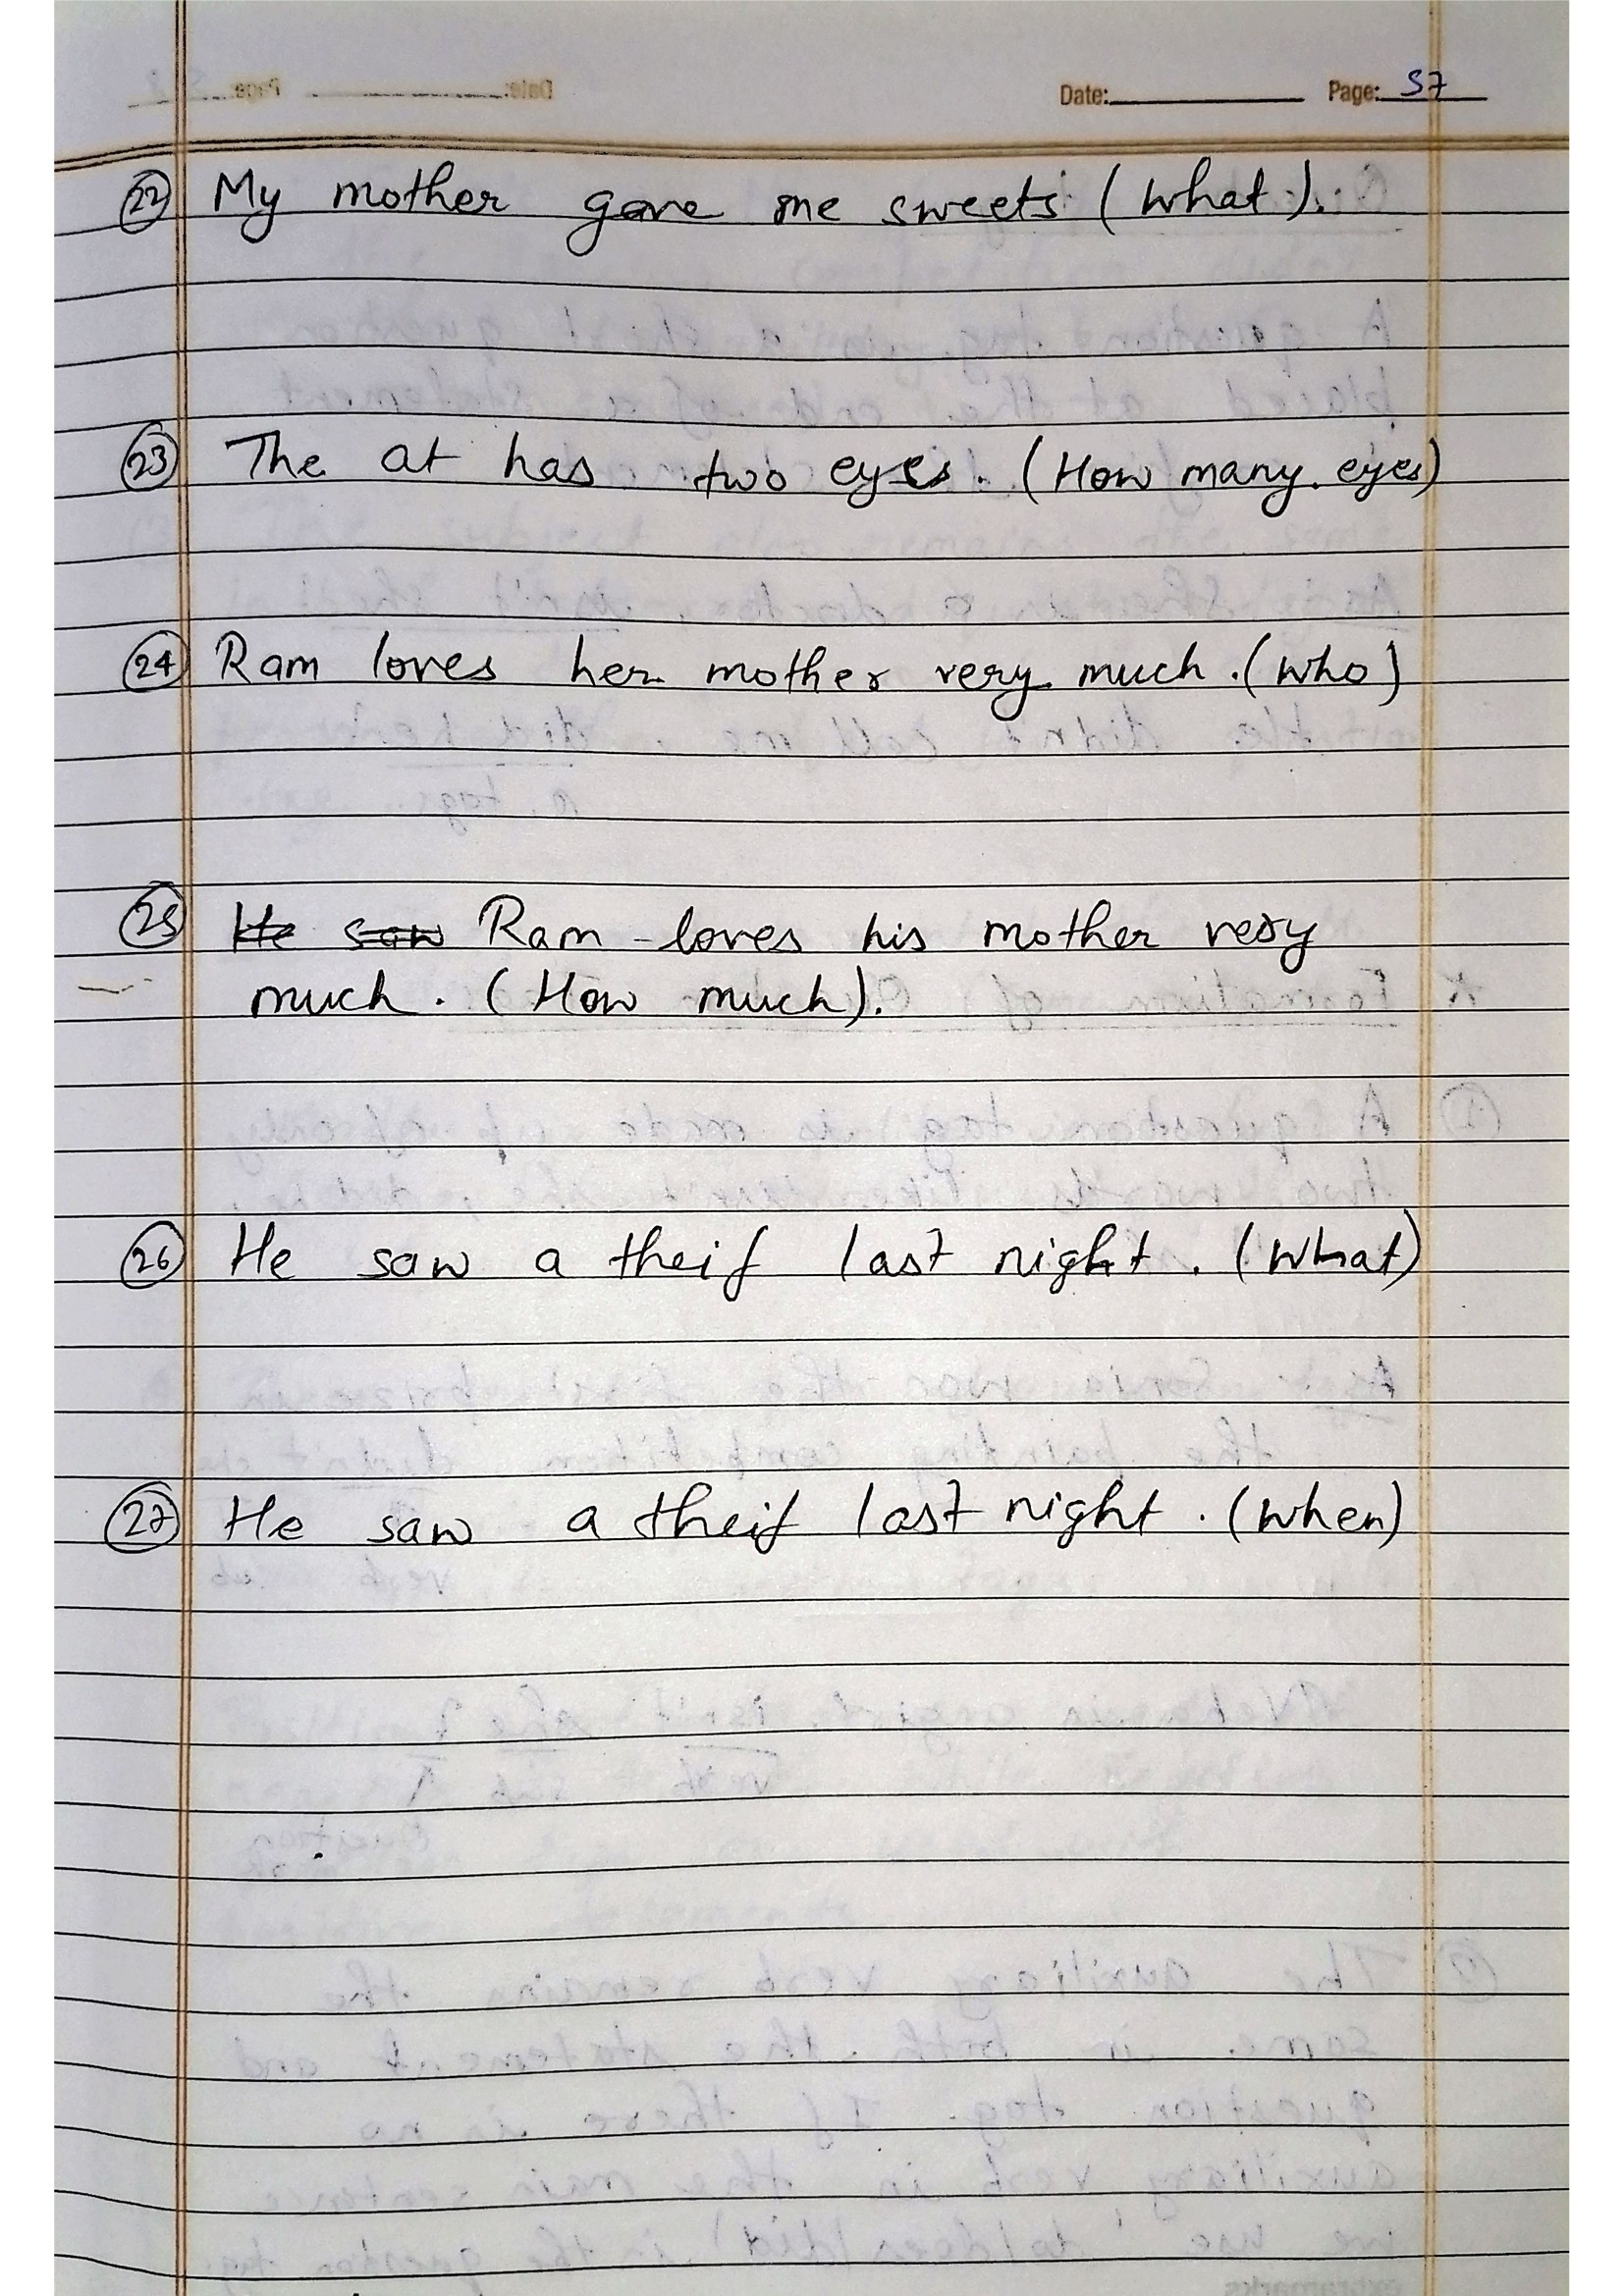 Date: Page: 57
22 My mother gave me sweets (what).
23 The at has two eyes. (How many eyes)
24 Ram loves her mother very much. (who)
25 He saw Ram loves his mother very
much. (How much).
26 He saw a theif last night. (what)
27 He saw a theif last night. (when)